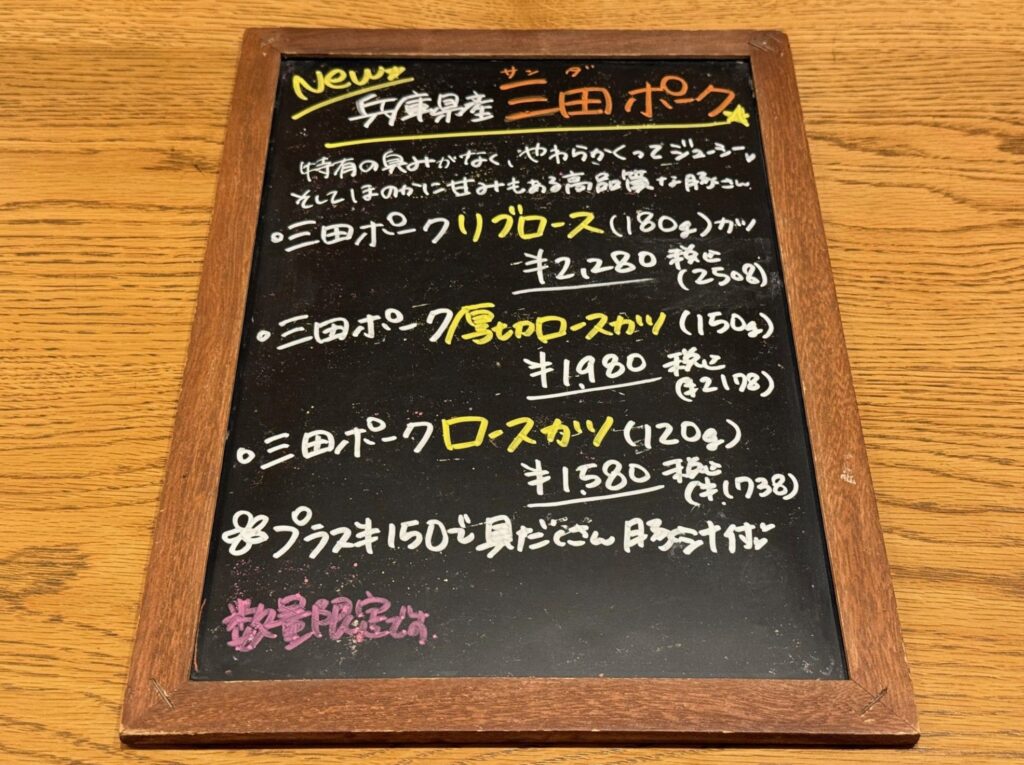 New
サンダ
兵庫県産 三田ポーク
特有の臭みがなく、やわらかくってジューシー♥
そしてほのかに甘みもある高品質な豚さん
•三田ポークリブロース(180g)カツ
¥2,280 税込(2508)
•三田ポーク厚切ロースカツ(150g)
¥1,980 税込(¥2178)
•三田ポークロースカツ(120g)
¥1,580 税込(¥1,738)
プラス¥150で具だくさん豚汁付♥
数量限定です